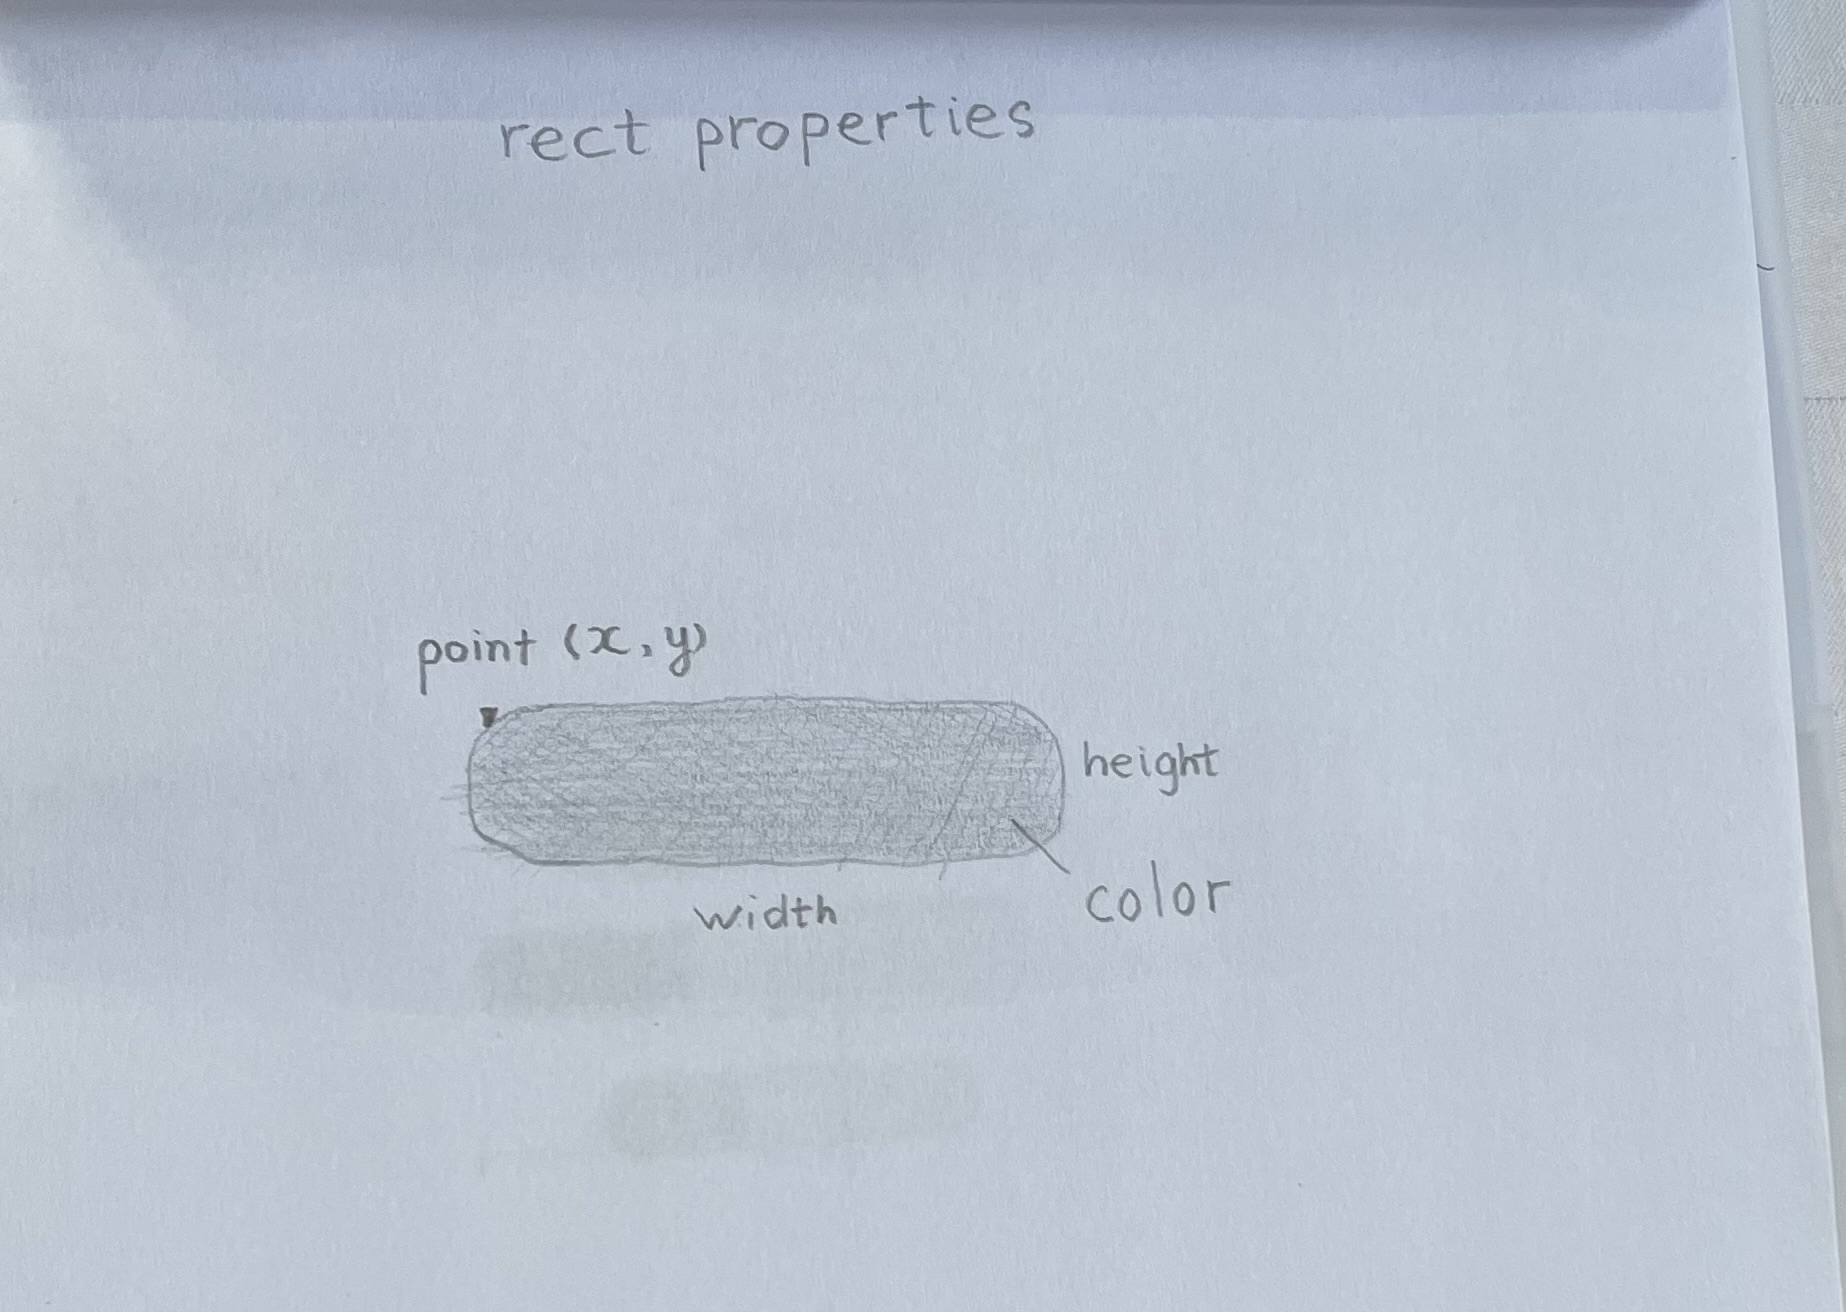 rect properties
point (x, y)
height
color
width